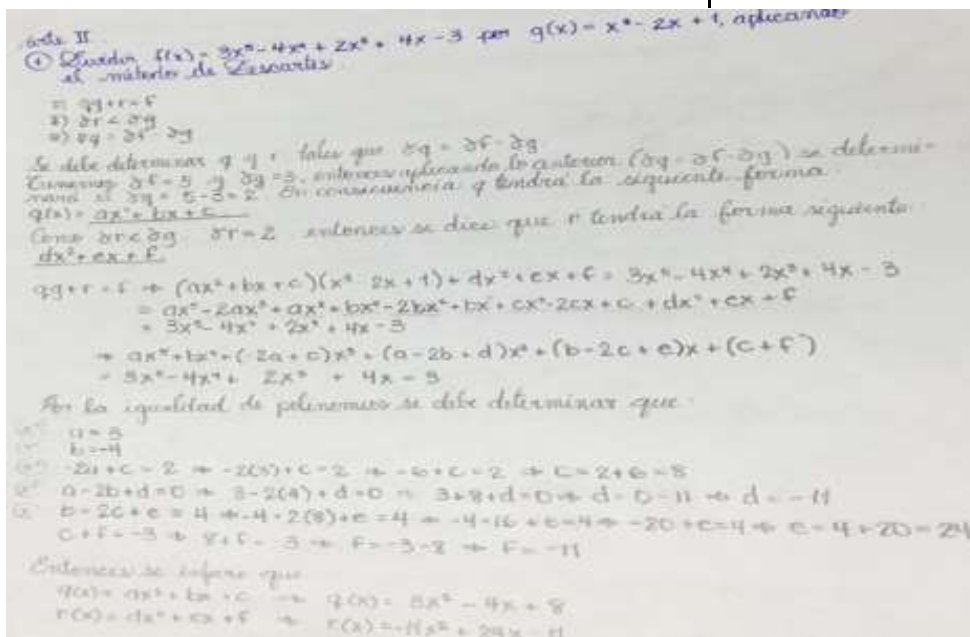 Parte II
① Dividir f(x) = 3x⁵ - 4x⁴ + 2x³ + 4x - 3 por g(x) = x³ - 2x + 1, aplicando
el método de Descartes.
qg + r = f
∂r < ∂g
∂q = ∂f - ∂g
Se debe determinar q y r tales que ∂q = ∂f - ∂g
Tenemos ∂f = 5 y ∂g = 3, entonces aplicando lo anterior (∂q = ∂f - ∂g) se determi-
nará el ∂q = 5 - 3 = 2. En consecuencia q tendrá la siguiente forma.
q(x) = ax² + bx + c
Como ∂r < ∂g ∂r = 2 entonces se dice que r tendrá la forma siguiente
dx² + ex + f
qg + r = f → (ax² + bx + c)(x³ - 2x + 1) + dx² + ex + f = 3x⁵ - 4x⁴ + 2x³ + 4x - 3
= ax⁵ - 2ax³ + ax² + bx⁴ - 2bx² + bx + cx³ - 2cx + c + dx² + ex + f
= 3x⁵ - 4x⁴ + 2x³ + 4x - 3
→ ax⁵ + bx⁴ + (-2a + c)x³ + (a - 2b + d)x² + (b - 2c + e)x + (c + f)
= 3x⁵ - 4x⁴ + 2x³ + 4x - 3
Por la igualdad de polinomios se debe determinar que
a = 3
b = -4
-2a + c = 2 → -2(3) + c = 2 → -6 + c = 2 → c = 2 + 6 = 8
a - 2b + d = 0 → 3 - 2(4) + d = 0 = 3 + 8 + d = 0 → d = 0 - 11 → d = -11
b - 2c + e = 4 → -4 - 2(8) + e = 4 → -4 - 16 + e = 4 → -20 + e = 4 → e = 4 + 20 = 24
c + f = -3 → 8 + f = -3 → f = -3 - 8 → f = -11
Entonces se infiere que
q(x) = ax² + bx + c → q(x) = 3x² - 4x + 8
r(x) = dx² + ex + f → r(x) = -11x² + 24x - 11